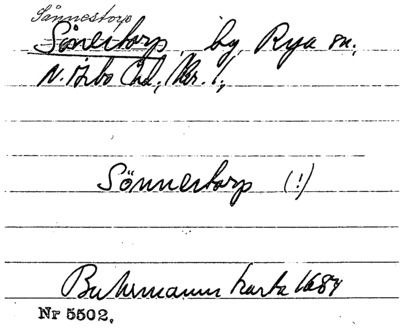 Sånnestorp
Sönnestorp, by, Rya sn,
N. Åsbo hd, Kr. l,
Sönnestorp (!)
Buhrmanns karta 1684
Nr 5502.